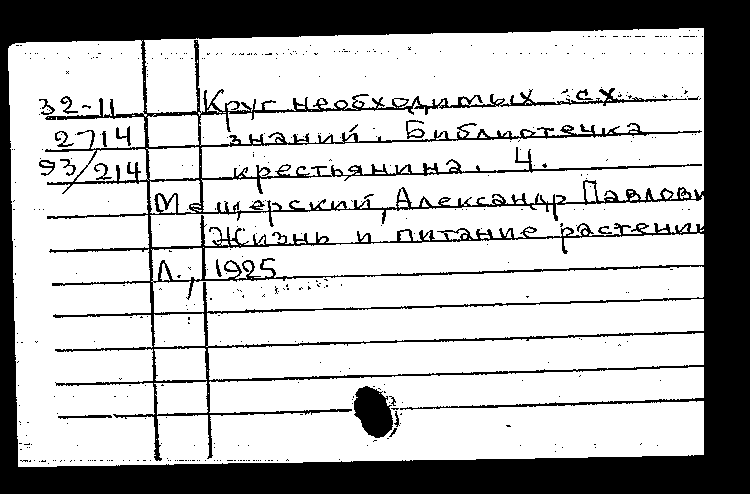 32-11 Круг необходимых сх
2714 знаний. Библиотечка
93/214 крестьянина. 4.
Мещерский, Александр Павлови
Жизнь и питание растении
Л., 1925.